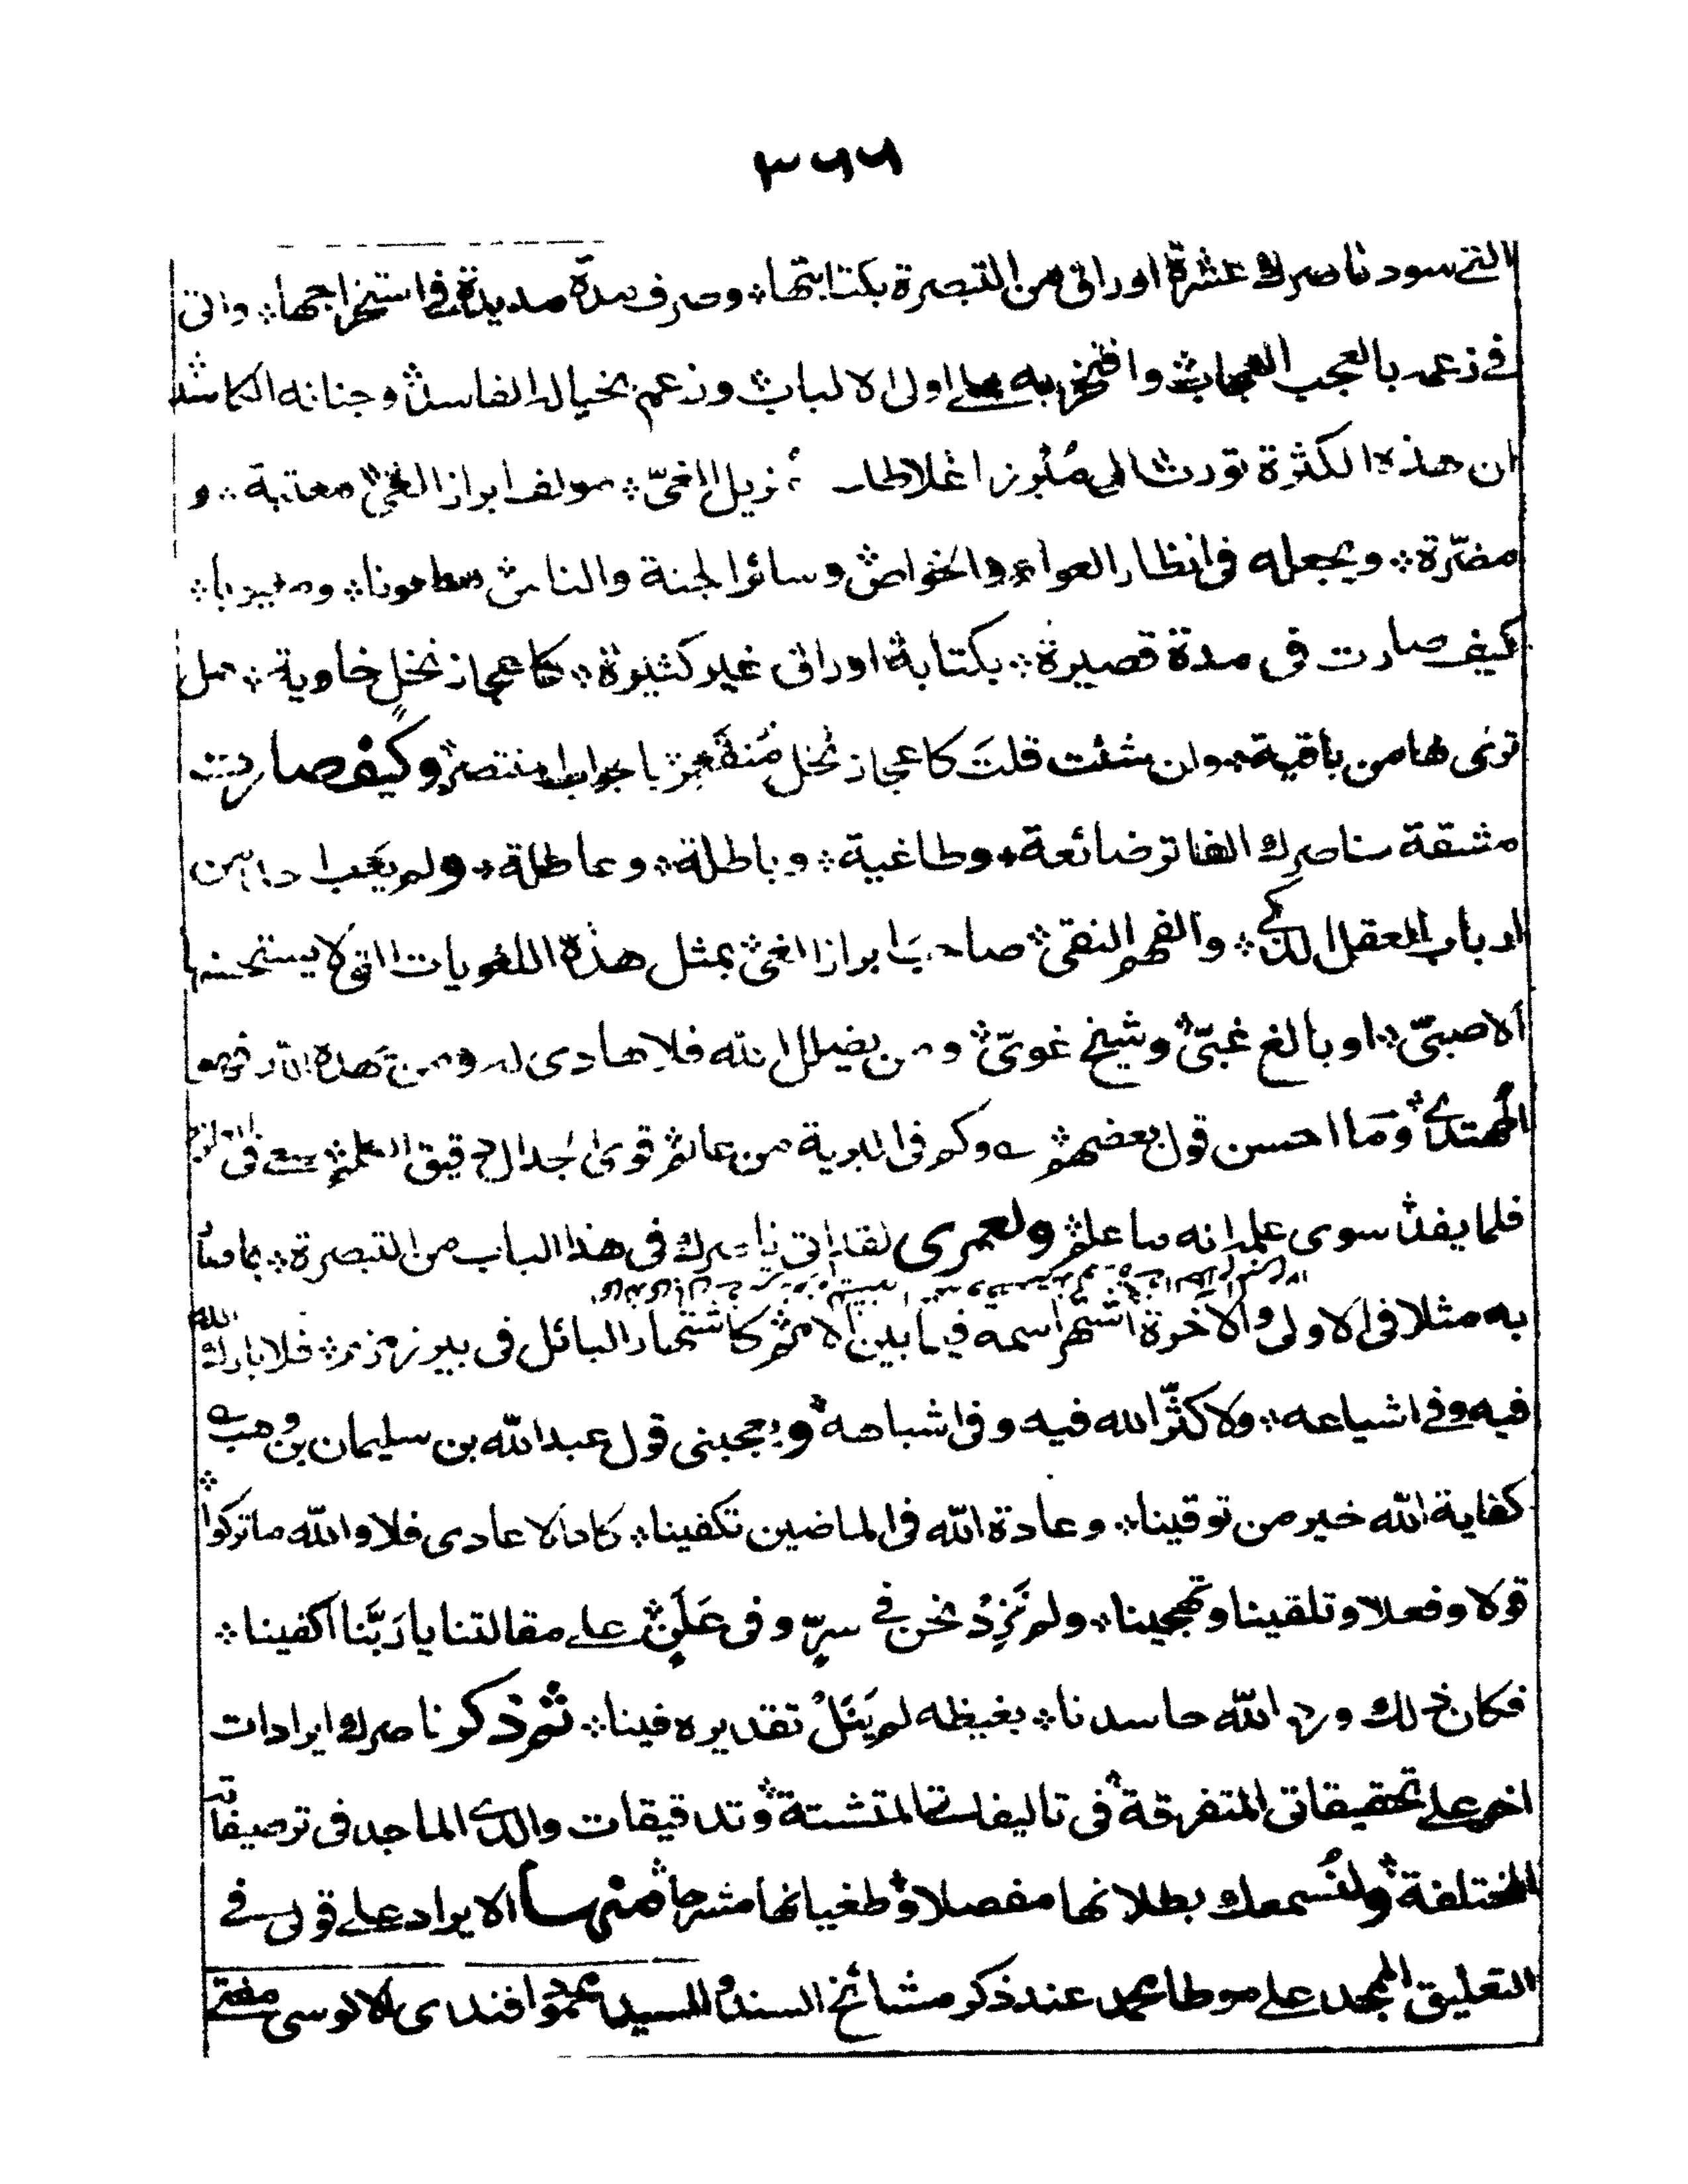 ٣٦٦
التي سود ناصرك عشرة اوراق من التبصرة بكتابتها؞ وصرف مدة مديدة في استخراجها؞ واتى
في زعمه بالعجب العجاب؞ وافتخر به على اولى الالباب؞ وزعم بخياله الفاسد؞ وجنانه الكاسد
ان هذه الكثرة تورث الى مُبْرز اغلاط مُزيل الغيّ؞ مولف ابراز الغيّ؞ معتبة؞ و
مضرّة؞ ويجعله في انظار العوام والخواص؞ وسائر الجنة والناس؞ مطعونا؞ ومعيوبا؞
كيف صارت في مدة قصيرة؞ بكتابة اوراق غير كثيرة؞ كاعجاز نخل خاوية؞ هل
ترى لها من باقية؞ وان شئت قلتَ كاعجاز نخل مُنقَعِر؞ يا جواب منتصر؞ وكيف صارت
مشقة ناصرك الفاتر ضائعة؞ وطاغية؞ وباطلة؞ وعاطلة؞ ولم يَعِب احد من
ارباب العقل الذكي؞ والفهم النقي؞ صاحبَ ابراز الغي؞ بمثل هذه اللغويات التي لا يستحسنها
الا صبيّ؞ او بالغ غبيّ؞ وشيخ غويّ؞ ومن يضلل الله فلا هادى له ومن يهده الله فهو
المهتدي؞ وما احسن قول بعضهم؞ ؎ وكم في البرية من عالم؞ قوى الجدال دقيق الكلم؞ سعى في
فلما يفد؞ سوى علمه انه ما علم؞ ولعمرى لقد اتى ناصرك في هذا الباب من التبصرة؞ بما صار
به مثلا في الاولى والآخرة اشتهر اسمه فيما بين الامم؞ كاشتهار البائل في بير زمزم؞ فلا بارك الله
فيه وفي اشياعه؞ ولا كثّر الله فيه وفي اشباهه؞ ويعجبنى قول عبد الله بن سليمان بن وهب ؎
كفاية الله خير من توقينا؞ وعادة الله في الماضين تكفينا؞ كاد الاعادى فلا والله ما تركوا؞
قولا وفعلا وتلقينا وتهجينا؞ ولم نَزِدْ نحن في سرٍّ وفى عَلَنٍ؞ على مقالتنا يا رَبَّنا اكفينا؞
فكان ذلك ورد الله حاسدنا؞ بغيظه لم يَنَلْ تقديره فينا؞ ثم ذكر ناصرك ايرادات
اخر على تحقيقاتى المتفرقة؞ في تاليفاتى المتشتة؞ وتدقيقات والدي الماجد في ترصيفاته
المختلفة؞ ولنُسمعك بطلانها مفصلا؞ وطغيانها مشرحا؞ منها الايراد على قولى في
التعليق الممجد على موطا محمد عند ذكر مشائخ السند؞ السيد محمود افندى الالوسى مفتى